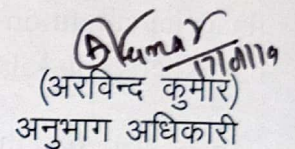 AKumar
17/01/19
(अरविन्द कुमार)
अनुभाग अधिकारी